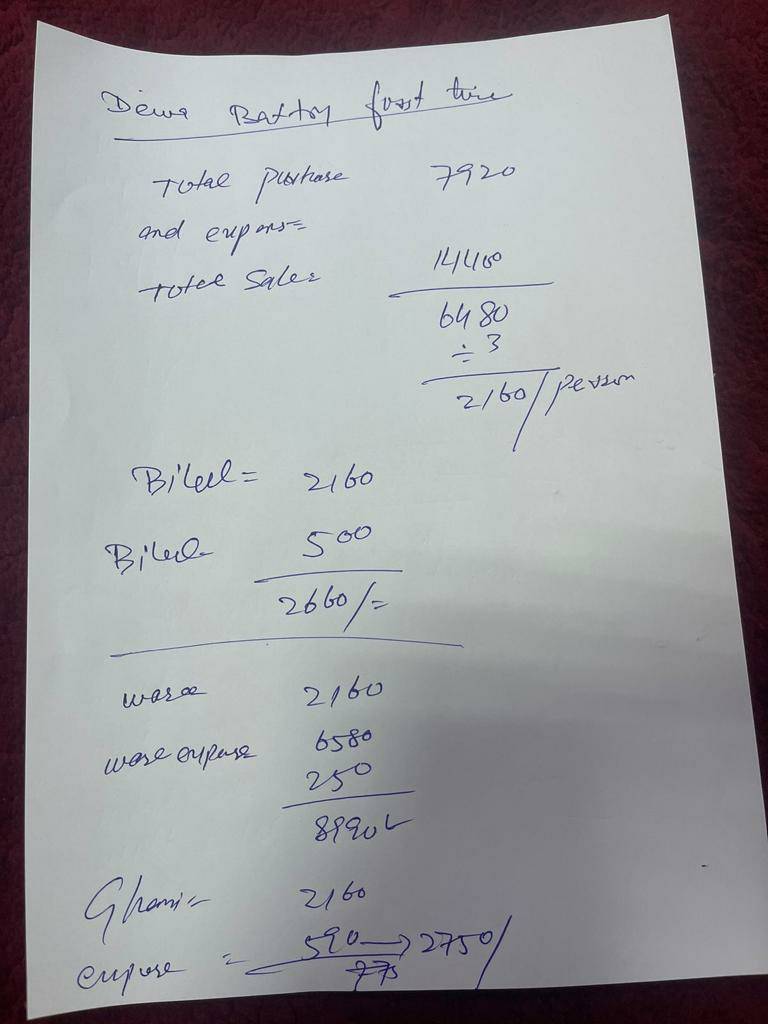 Dewa Battry first time
Total purchase 7920
and expense
Total Sale= 14400
6480
÷ 3
2160/person
Bilal= 2160
Bilal 500
2660/=
2160
expense 6580
250
8990
Ghani= 2160
expense = 590 → 2750/